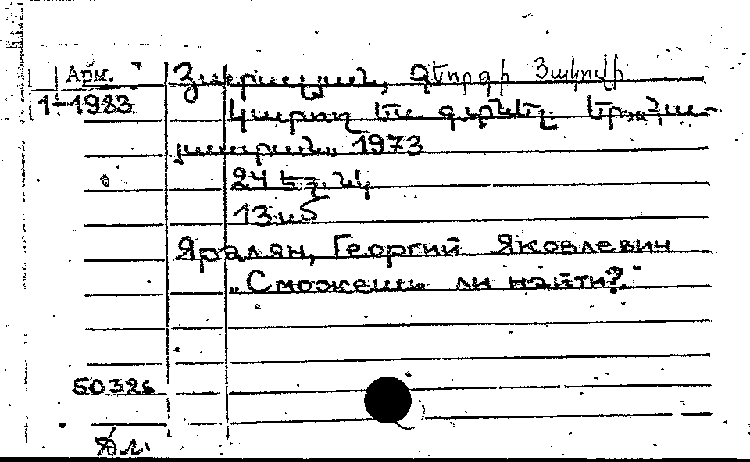 Арм.
Յարալյան, Գեորգի Յակովի
1-1983
Կարող ես գտնել. Եր., Հա-
յաստան. 1973
24 էջ. նկ
13 սմ
Яралян, Георгий Яковлевич
„Сможешь ли найти?"
50326